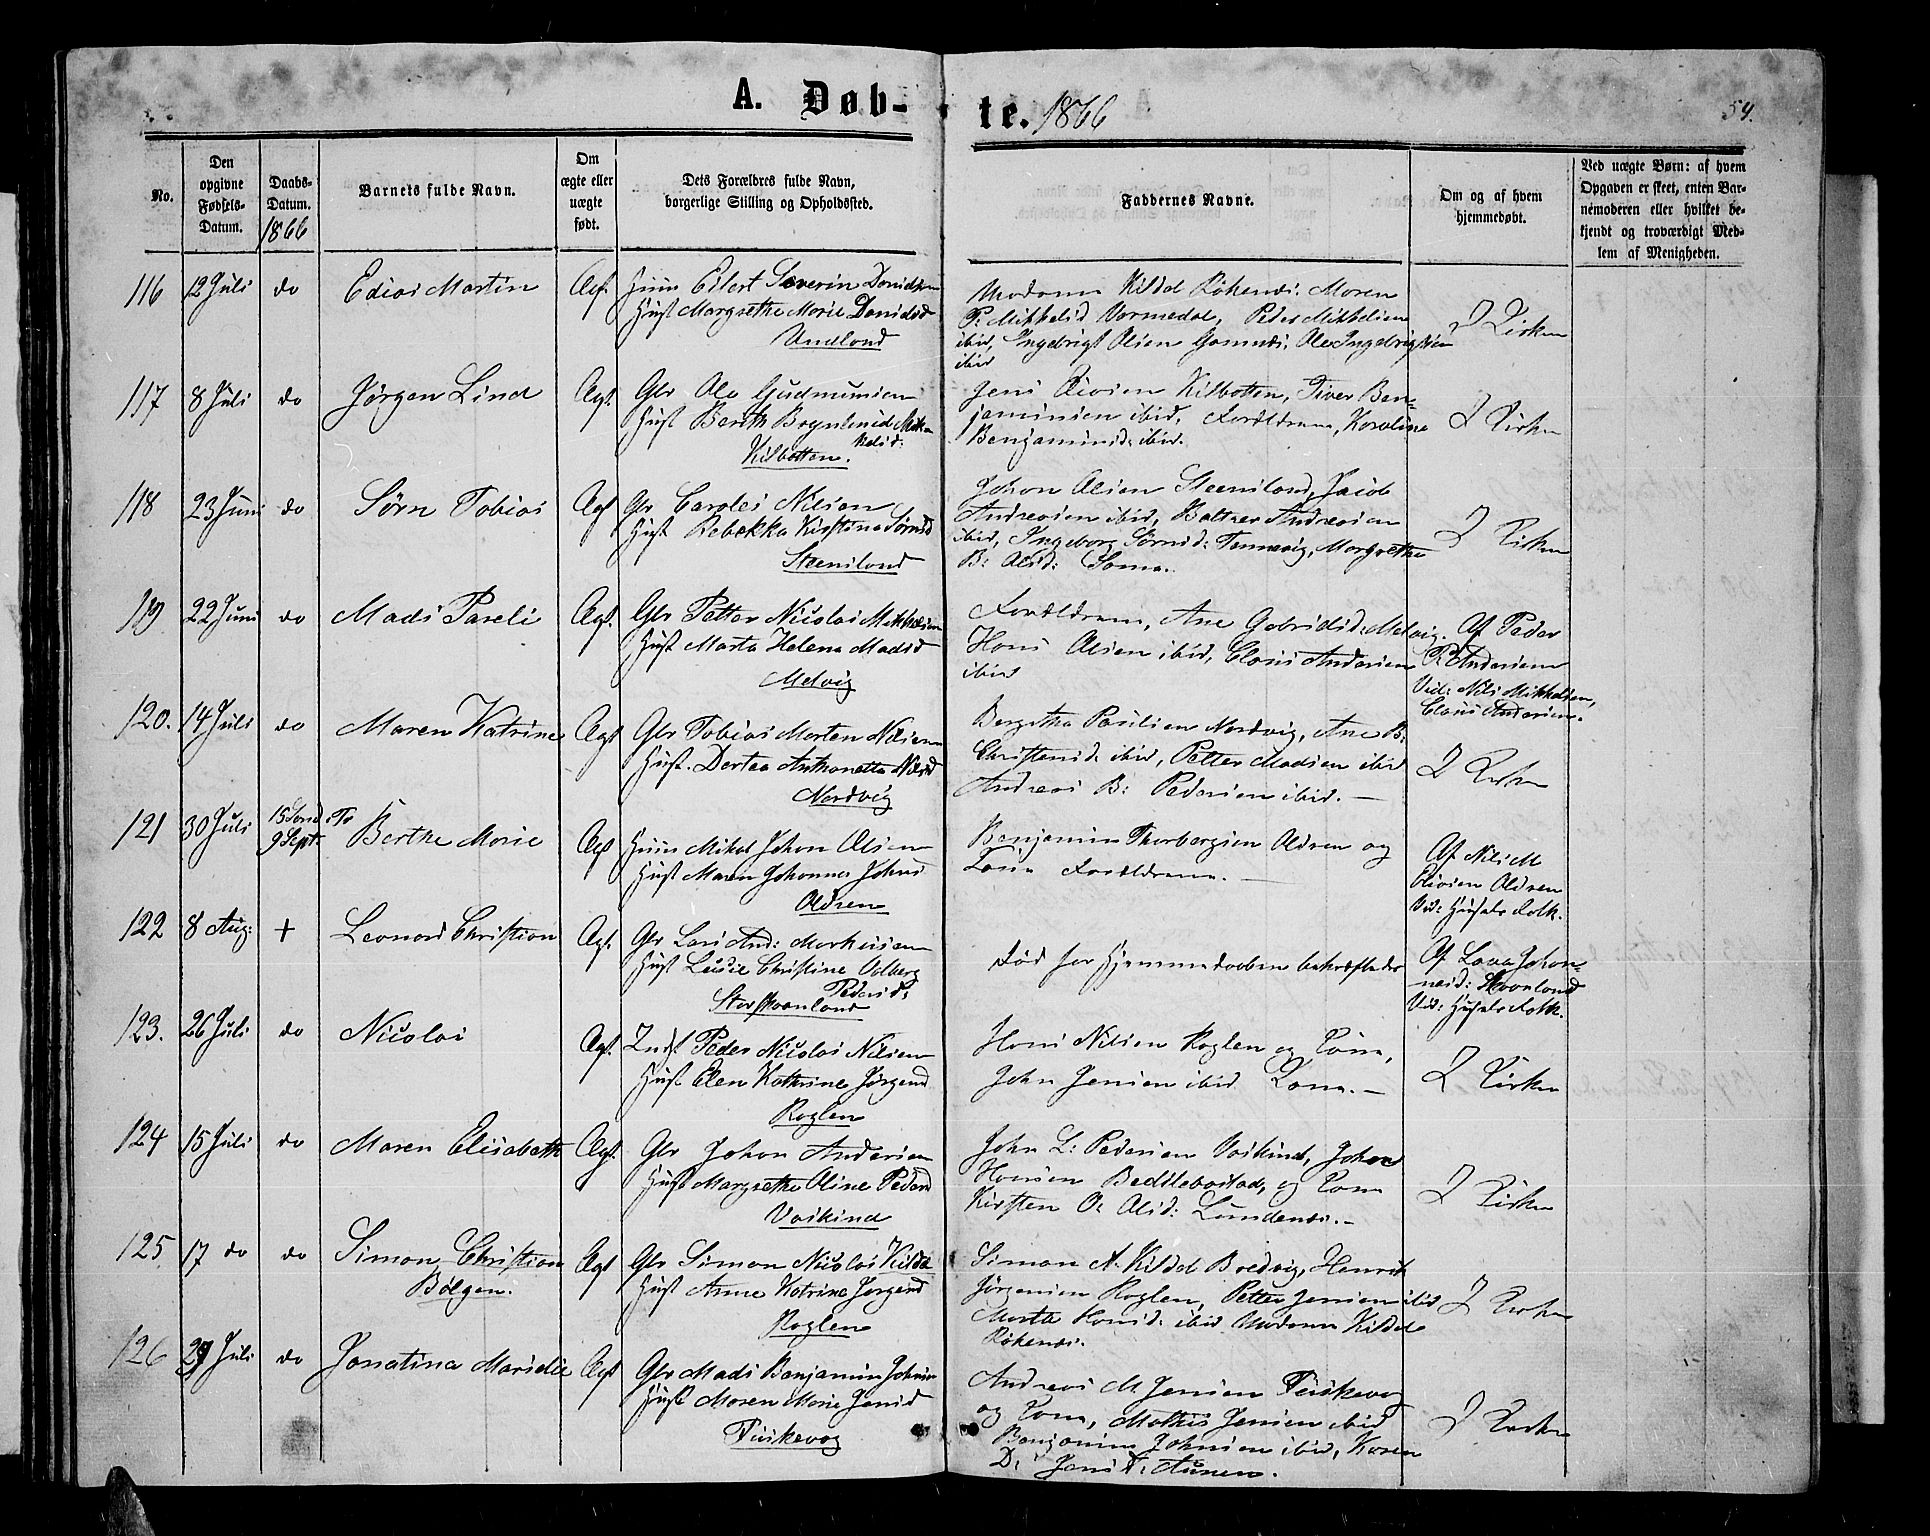 A. Døb- te. 1866
54.
No.
Den opgivne Fødsels-Datum.
Daabs-Datum. 1866
Barnets fulde Navn.
Om ægte eller uægte født.
Dets Forældres fulde Navn, borgerlige Stilling og Opholdssted.
Faddernes Navne.
Om og af hvem hjemmedøbt.
Ved uægte Børn: af hvem Opgaven er skeet, enten Barnemoderen eller hvilket bekjendt og troværdigt Medlem af Menigheden.
116 12 Juli do Martin Huus Eilert Severin
Hust Margrethe Marie
Madame Kildal Røkenæs.
Peder Mikkelsen
ibid, Ingebrigt Olsen
ibid
I Kirken
117 8 Juli do Jørgen Lind Ægt. Gbr Ole Gudmunsen
Hust Berith
Kilbotten.
Kilbotten, Iver Ben-
jaminsen ibid, Forældrene, Karoline
Benjaminsd: ibid.
I Kirken
118 23 Juni do Sørn Tobias Ægt Gbr Carolus Nilsen
Hust Rebekka Kirstina Sørnsd
Steensland
Johan Olsen Steensland, Jacob
Andreasen ibid, Baltzer Andreasen
ibid, Ingeborg Sørnsd: Tennevig, Margrethe
B: Olsd: Sama.
I Kirken
119 22 Juni do Mads Pareli Ægt. Gbr Petter Nicolai Mikkelsen
Hust Marta Helena Madsd
Melvig
Forældrene, Ane Gabrielsd: Melvig.
Hans Olsen ibid, Claus Andersen
ibid
Af Peder
P: Andersen
Vid: Nils Mikkelsen,
Claus Andersen.
120. 14 Juli do Maren Katrine Ægt Gbr Tobias Morten Nilsen
Hust. Dortea Anthonetta Nilsd
Nordvig
Bergitha Paulsen Nordvig, Ane B:
Christensd: ibid, Petter Madsen ibid
Andreas B: Pedersen ibid.
I Kirken
121 30 Juli 15 Sønd. Tr 9 Sept: Berthe Marie Ægt Huus Mikal Johan Olsen
Hust Maren Johanna Johnsd
Aldren
Benjamin Thorbergsen Aldren og
Kona Forældrene.
Af Nils M
Olsen Aldren
Vid: Husets Folk.
122 8 Aug: + Leonard Christian Ægt. Gbr Lars And: Markusen
Hust Lusie Christine Volberg
Pedersd:
Storskoanland
Død før Hjemmedaaben bekræftedes
Af Lava Johan-
nesd: Skoanland
Vid: Husets Folk.
123. 26 Juli do Nicolai Ægt. Indst Peder Nicolai Nilsen
Hust Elen Kathrine Jørgensd
Roglen
Hans Nilsen Roglen og Kona,
John Jensen ibid Kona.
I Kirken
124 15 Juli do Maren Elisabeth Ægt. Gbr Johan Andersen
Hust Margrethe Oline Pedersd
Voskind
John L: Pedersen Voskind, Johan
Hansen og Kona
Kirsten O: Olsd: Lundenæs.
I Kirken
125. 17 do do Simon Christian
Bølgen. Ægt Gbr Simon Nicolai Kildal
Hust Anne Katrine Jørgensd
Roglen
Simon A. Kildal Bredvig, Henrik
Jørgensen Roglen, Petter Jensen ibid
Marta Hansd: ibid Madame Kildal
Røkenæs.
I Kirken
126 29 Juli do Jonatina Ægt Gbr Mads Benjamin Johnsen
Hust Maren Marie Jensd
Fuskevog
Andreas M. Jensen Fuskevog
og Kona, Mathis Jensen ibid
Benjamin Johnsen ibid, Karen
D: Jensd: Aunen.
I Kirken